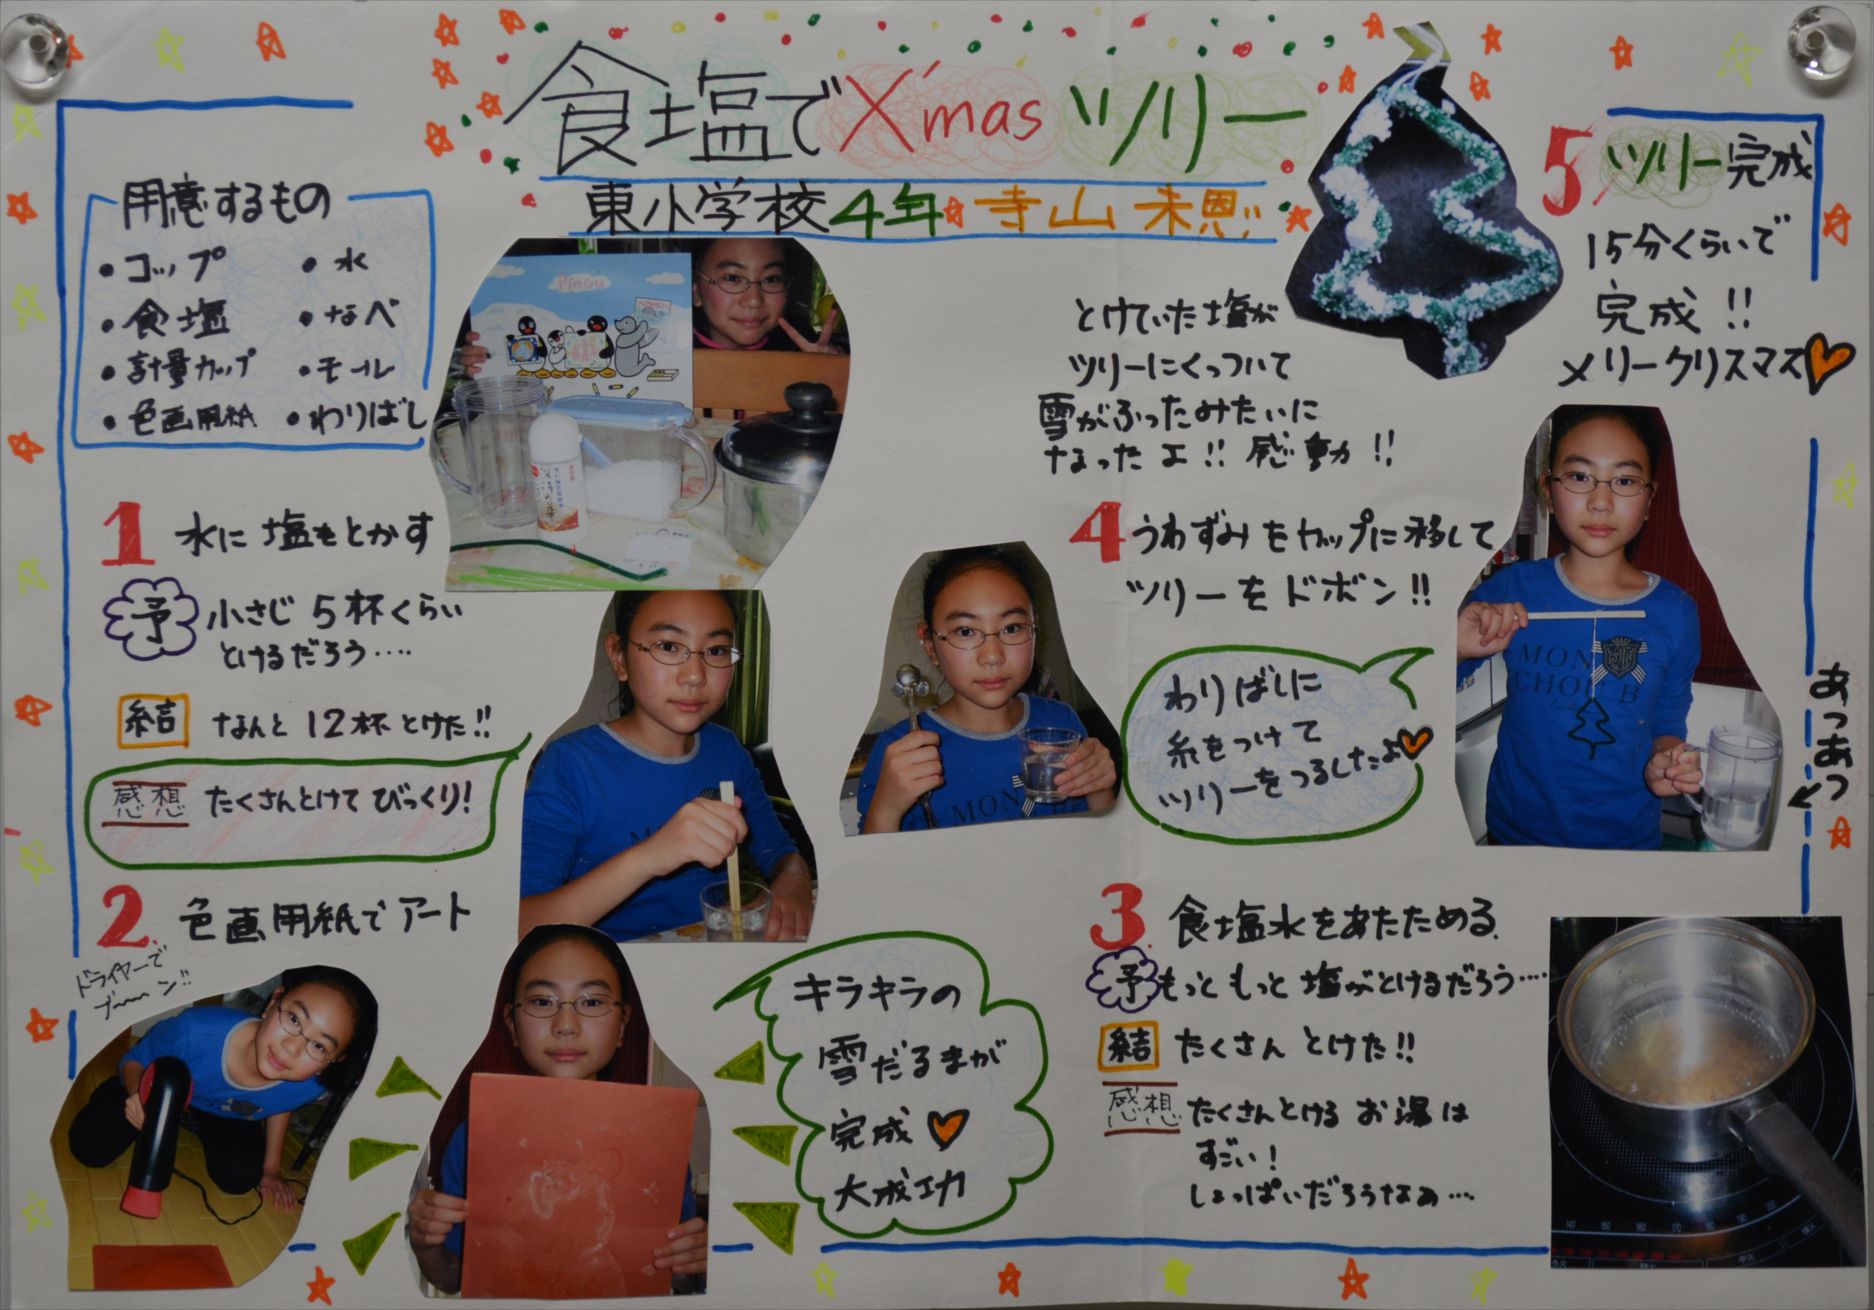 食塩でX'masツリー
東小学校4年 寺山 未恩
用意するもの
・コップ ・水
・食塩 ・なべ
・計量カップ ・モール
・色画用紙 ・わりばし
Pingu
1 水に塩をとかす
予 小さじ5杯くらい
とけるだろう‥‥
結 なんと12杯とけた!!
感想 たくさんとけてびっくり!
2. 色画用紙でアート
ドライヤーで
ブーーン!!
キラキラの
雪だるまが
完成
大成功
3. 食塩水をあたためる
予 もっともっと塩がとけるだろう‥‥
結 たくさんとけた!!
感想 たくさんとけるお湯は
すごい!
しょっぱいだろうなぁ…
4 うわずみをカップに移して
ツリーをドボン!!
わりばしに
糸をつけて
ツリーをつるしたよ
MON
CHOU B
あつあつ
とけていた塩が
ツリーにくっついて
雪がふったみたいに
なったエ!! 感動!!
5 ツリー完成
15分くらいで
完成!!
メリークリスマス